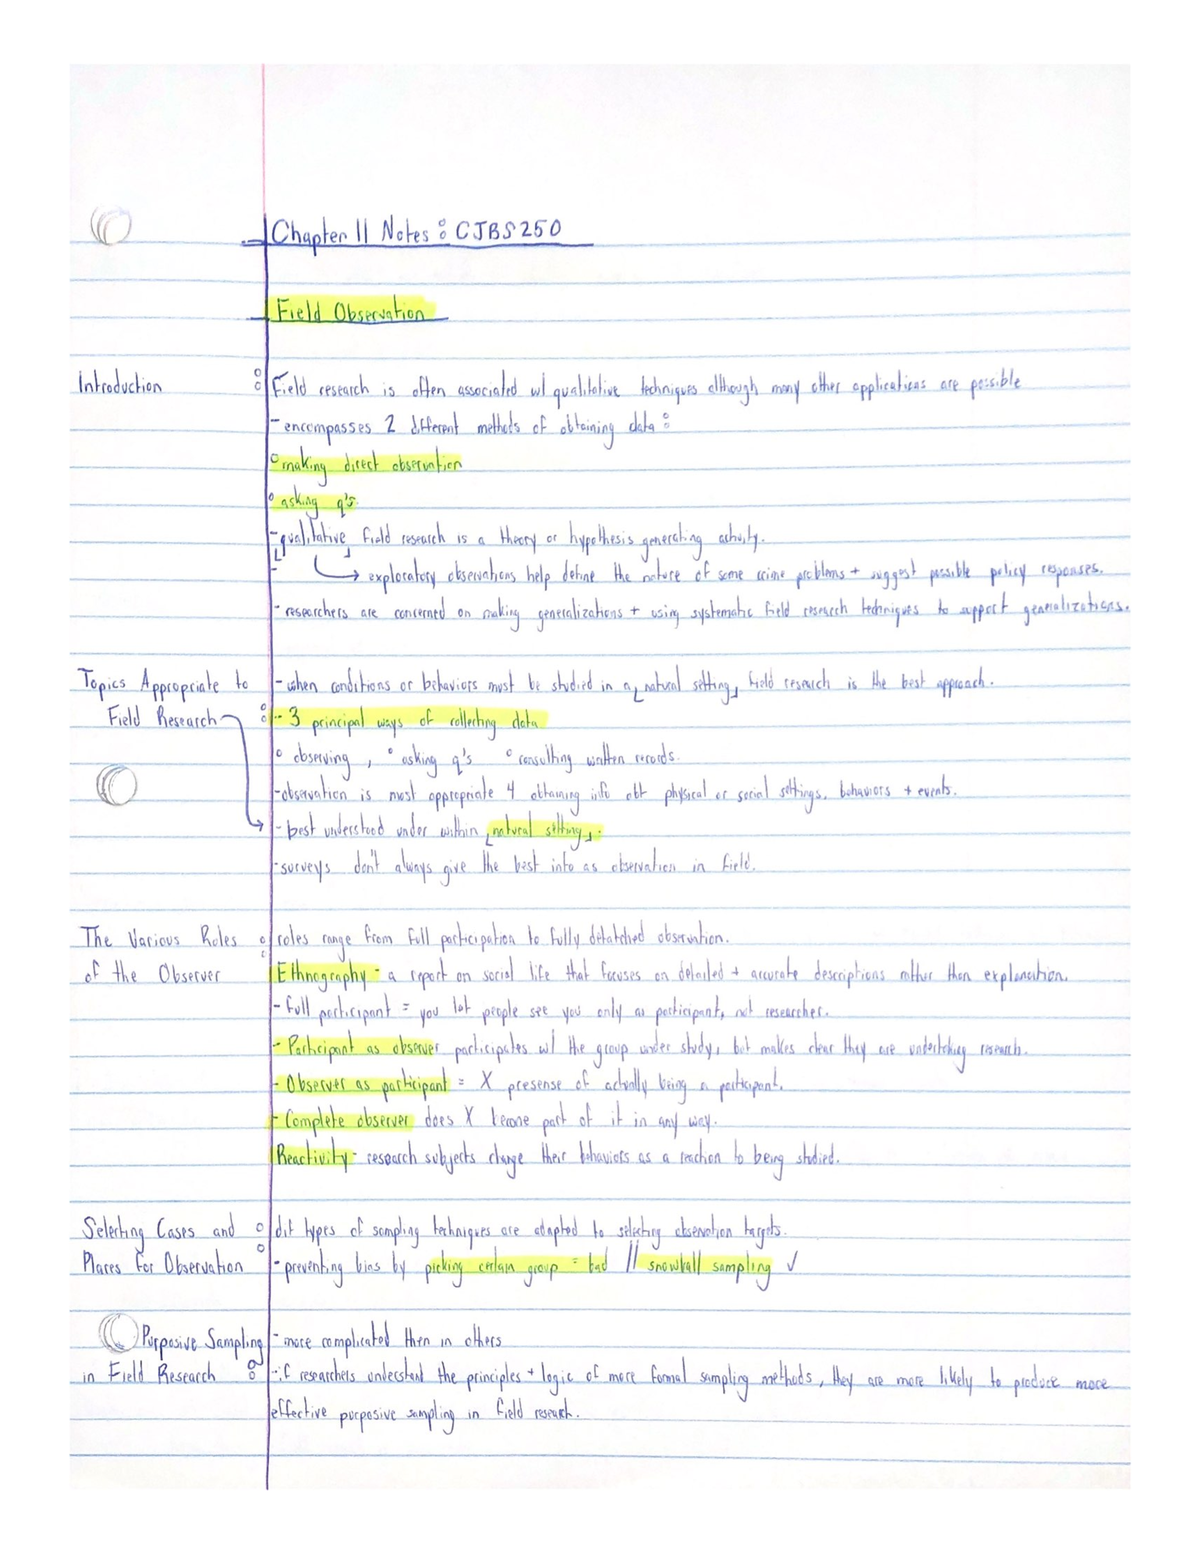 Chapter 11 Notes : CJBS250
Field Observation
Introduction : Field research is often associated w/ qualitative techniques although many other applications are possible
- encompasses 2 different methods of obtaining data :
° making direct observation
° asking q's.
- qualitative field research is a theory or hypothesis generating activity.
- → exploratory observations help define the nature of some crime problems + suggest possible policy responses.
- researchers are concerned on making generalizations + using systematic field research techniques to support generalizations.
Topics Appropriate to - when conditions or behaviors must be studied in a natural setting, field research is the best approach.
Field Research : - 3 principal ways of collecting data
° observing , ° asking q's ° consulting written records.
- observation is most appropriate 4 obtaining info abt physical or social settings, behaviors + events.
→ - best understood under within natural setting.
- surveys don't always give the best info as observation in field.
The Various Roles : roles range from full participation to fully detatched observation.
of the Observer Ethnography - a report on social life that focuses on detailed + accurate descriptions rather than explanation.
- full participant = you let people see you only as participant, not researcher.
- Participant as observer participates w/ the group under study, but makes clear they are undertaking research.
- Observer as participant = X presense of actually being a participant.
- Complete observer does X become part of it in any way.
Reactivity - research subjects change their behaviors as a reaction to being studied.
Selecting Cases and : dif types of sampling techniques are adapted to selecting observation targets.
Places for Observation - preventing bias by picking certain group = bad // snowball sampling ✓
Purposive Sampling - more complicated then in others
in Field Research : - if researchers understand the principles + logic of more formal sampling methods, they are more likely to produce more
effective purposive sampling in field research.